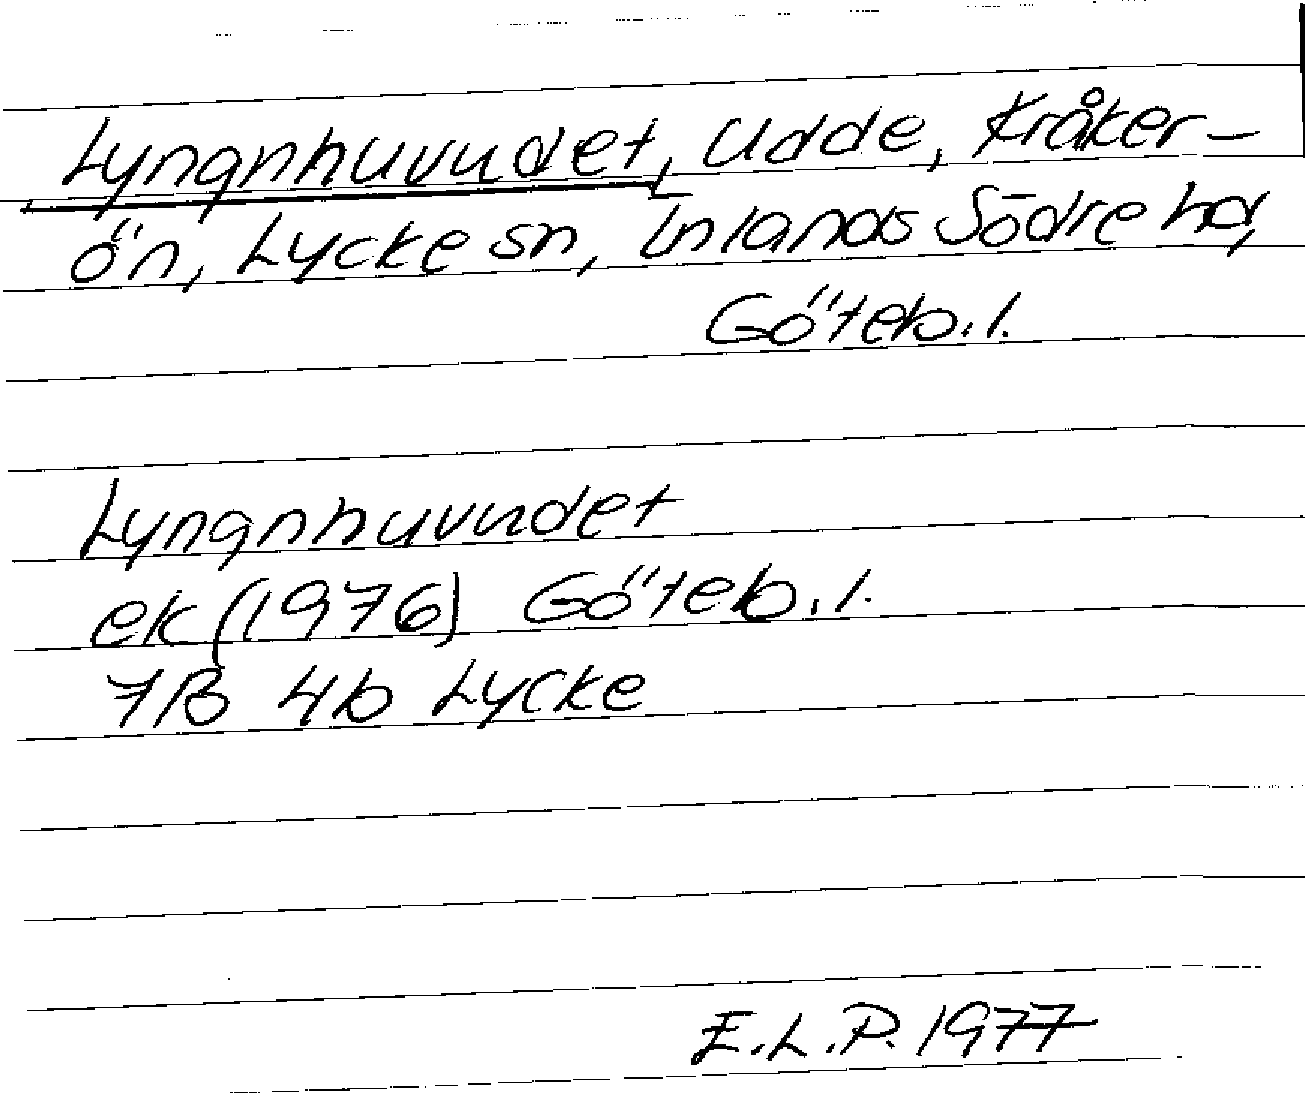 Lyngnhuvudet, udde, Kråker-
ön, Lycke sn, Inlands Södre hd,
Göteb.l.
Lyngnhuvudet
ek (1976) Göteb.l.
7B 4b Lycke
E.L.P. 1977